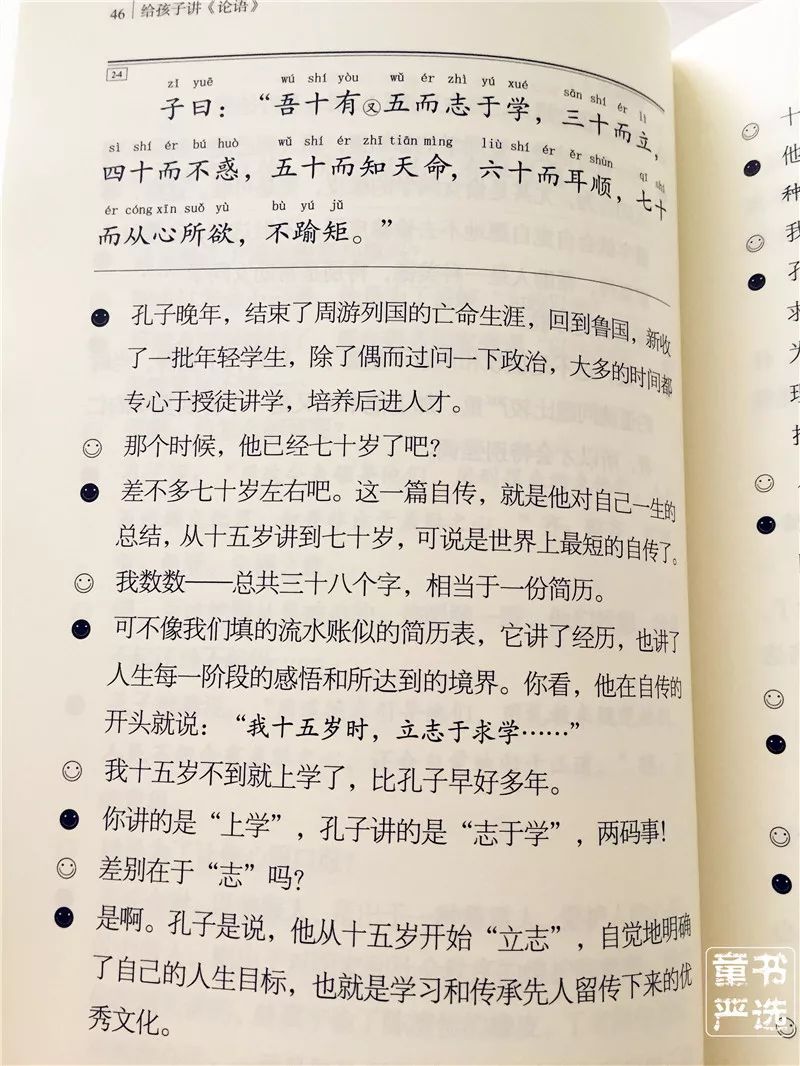 46 给孩子讲《论语》
2-4
zǐ yuē wú shí yòu wǔ ér zhì yú xué sān shí ér lì
子曰：“吾十有又五而志于学，三十而立，
sì shí ér bú huò wǔ shí ér zhī tiān mìng liù shí ér ěr shùn qī shí
四十而不惑，五十而知天命，六十而耳顺，七十
ér cóng xīn suǒ yù bù yú jǔ
而从心所欲，不踰矩。”
孔子晚年，结束了周游列国的亡命生涯，回到鲁国，新收
了一批年轻学生，除了偶而过问一下政治，大多的时间都
专心于授徒讲学，培养后进人才。
那个时候，他已经七十岁了吧？
差不多七十岁左右吧。这一篇自传，就是他对自己一生的
总结，从十五岁讲到七十岁，可说是世界上最短的自传了。
我数数——总共三十八个字，相当于一份简历。
可不像我们填的流水账似的简历表，它讲了经历，也讲了
人生每一阶段的感悟和所达到的境界。你看，他在自传的
开头就说：“我十五岁时，立志于求学……”
我十五岁不到就上学了，比孔子早好多年。
你讲的是“上学”，孔子讲的是“志于学”，两码事！
差别在于“志”吗？
是啊。孔子是说，他从十五岁开始“立志”，自觉地明确
了自己的人生目标，也就是学习和传承先人留传下来的优
秀文化。
十
他
种
我
孔
求
为
童书
严选